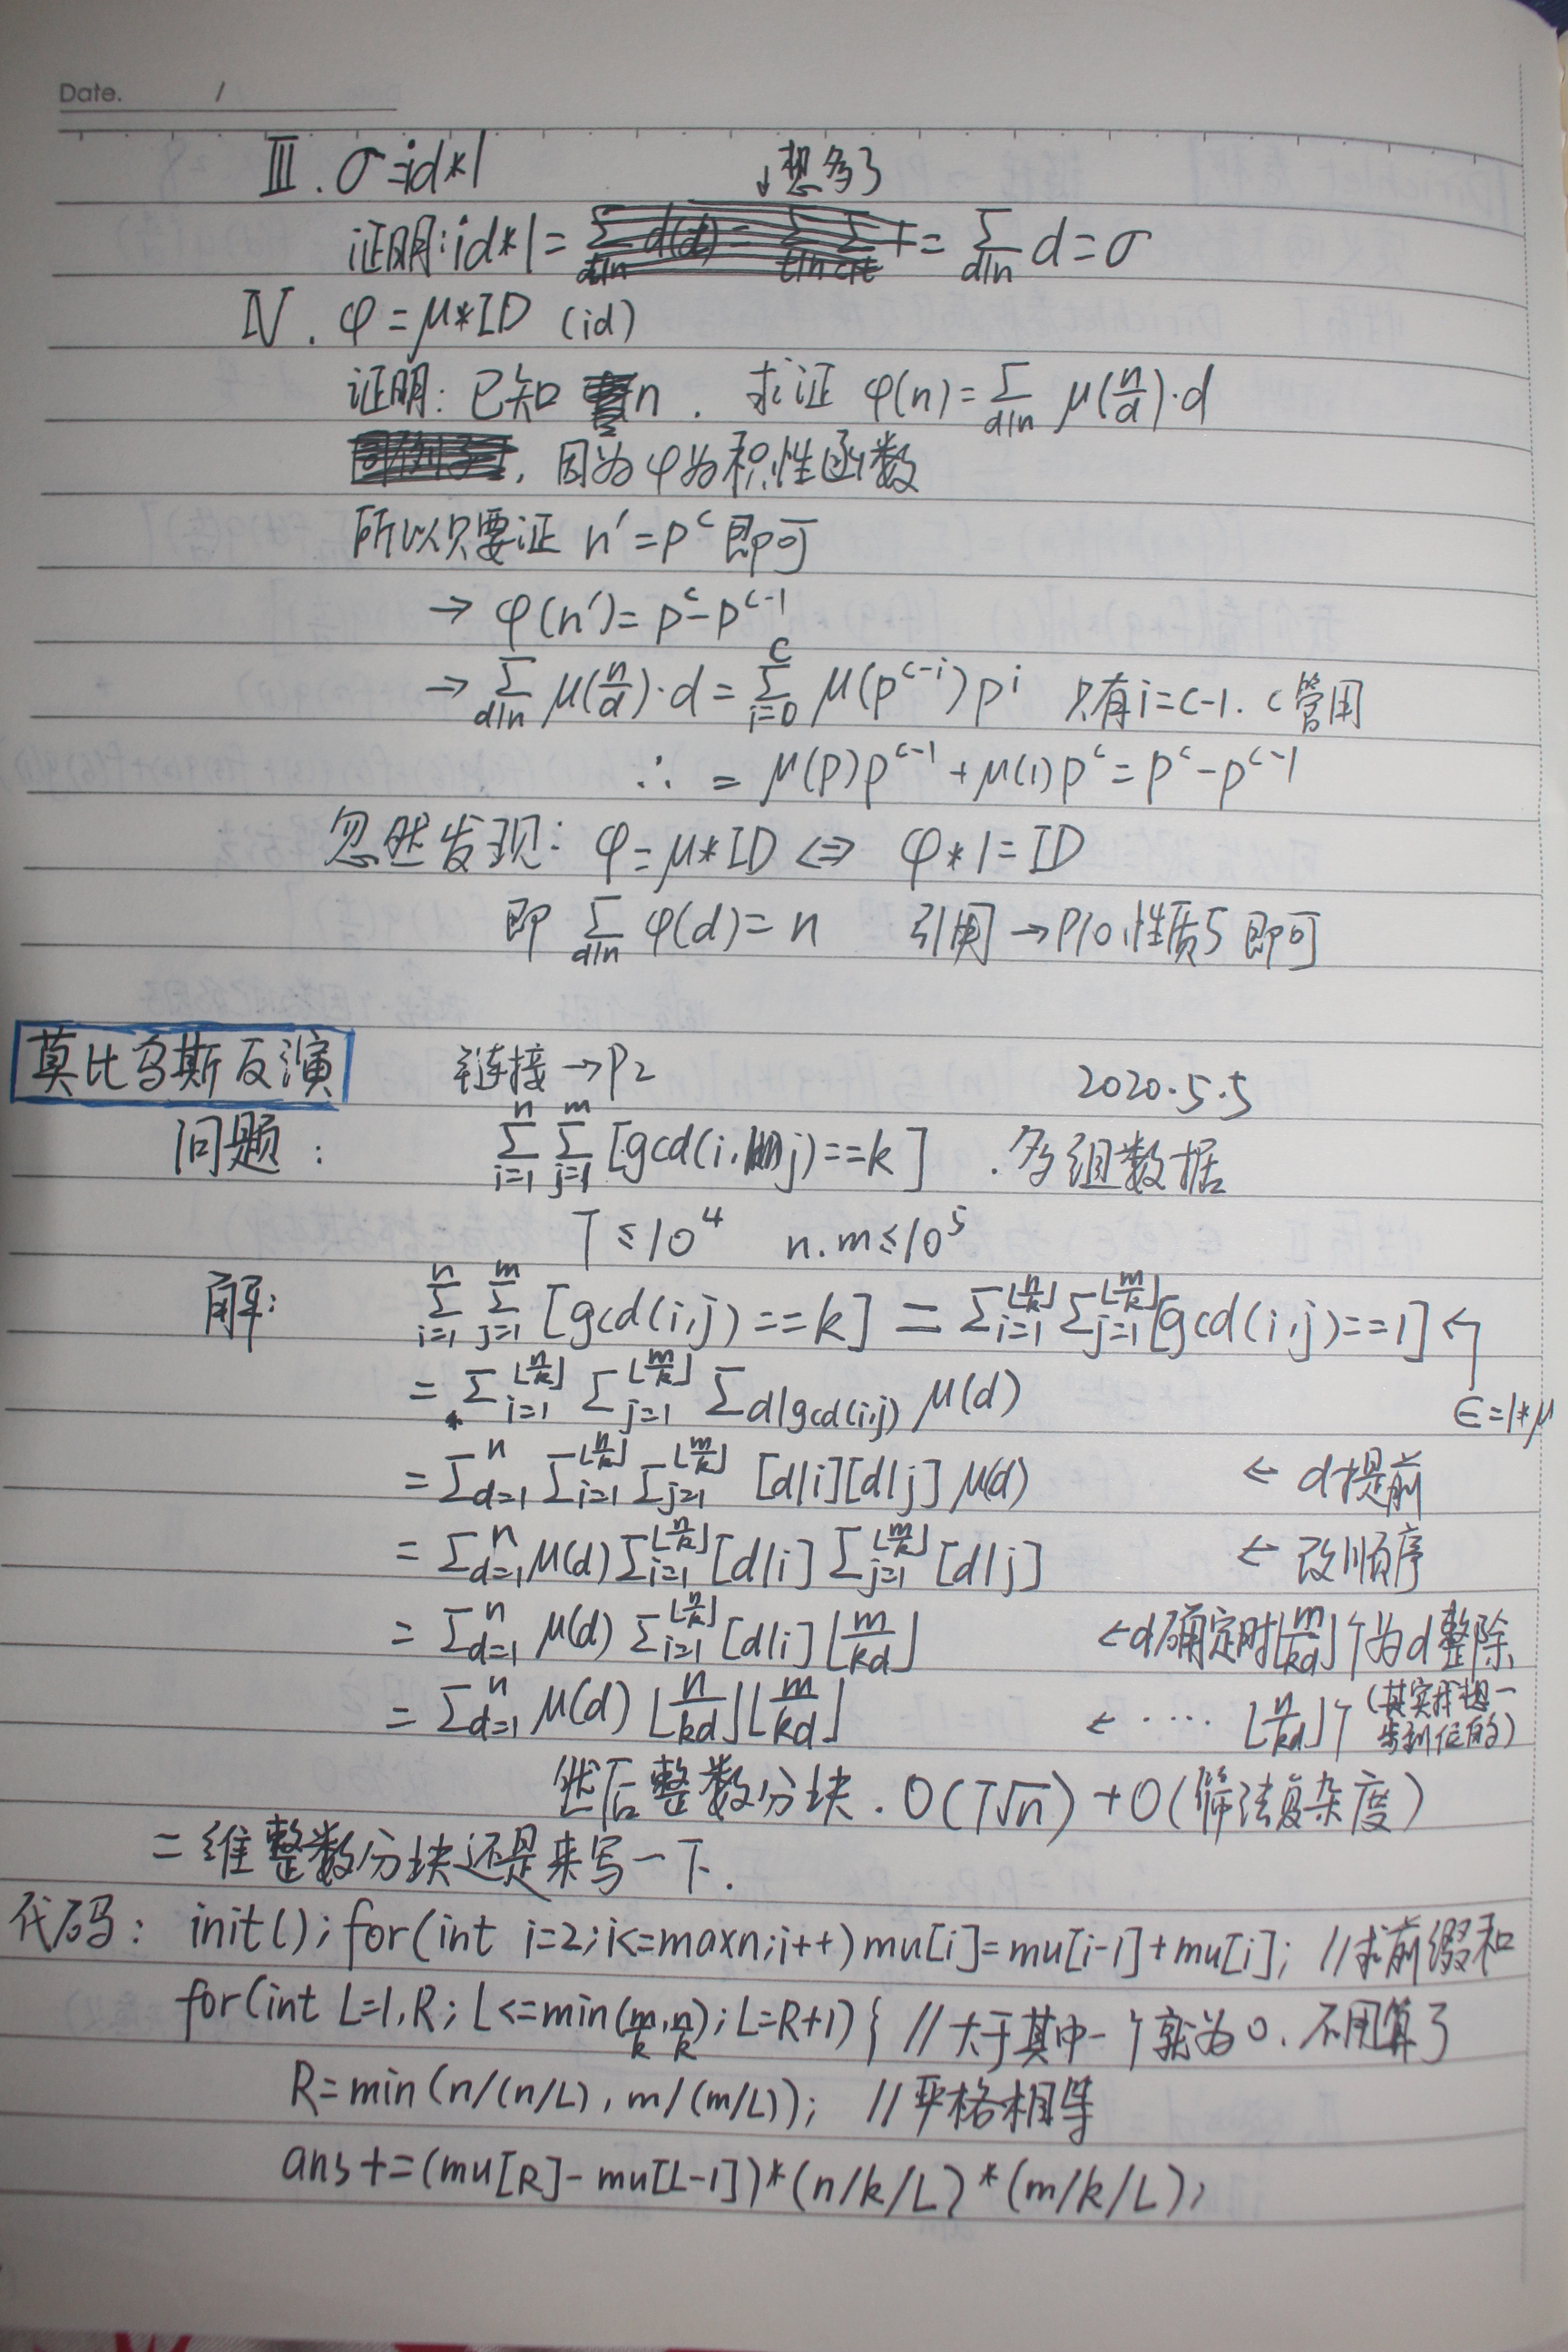 Date. /
Ⅲ. σ=id*1 ↓想多了
证明:id*1= = ∑_{d|n} d=σ
Ⅳ. φ=μ*ID (id)
证明: 已知 n. 求证 φ(n)=∑_{d|n} μ(n/d)·d
, 因为φ为积性函数
所以只要证 n'=p^c 即可
→ φ(n')=p^c-p^{c-1}
→ ∑_{d|n} μ(n/d)·d=∑_{i=0}^{c} μ(p^{c-i})p^i 只有i=c-1. c管用
∴ = μ(p)p^{c-1}+μ(1)p^c=p^c-p^{c-1}
忽然发现: φ=μ*ID ⇔ φ*1=ID
即 ∑_{d|n} φ(d)=n 引用→P10.性质5 即可
莫比乌斯反演 链接→P2 2020.5.5
问题: ∑_{i=1}^{n} ∑_{j=1}^{m} [gcd(i,j)==k] .多组数据
T≤10^4 n.m≤10^5
解: ∑_{i=1}^{n} ∑_{j=1}^{m} [gcd(i,j)==k] = ∑_{i=1}^{⌊n/k⌋} ∑_{j=1}^{⌊m/k⌋} [gcd(i,j)==1] ←
= ∑_{i=1}^{⌊n/k⌋} ∑_{j=1}^{⌊m/k⌋} ∑_{d|gcd(i,j)} μ(d) ∈=1*μ
= ∑_{d=1}^{n} ∑_{i=1}^{⌊n/k⌋} ∑_{j=1}^{⌊m/k⌋} [d|i][d|j] μ(d) ← d提前
= ∑_{d=1}^{n} μ(d) ∑_{i=1}^{⌊n/k⌋} [d|i] ∑_{j=1}^{⌊m/k⌋} [d|j] ← 改顺序
= ∑_{d=1}^{n} μ(d) ∑_{i=1}^{⌊n/k⌋} [d|i] ⌊m/kd⌋ ←d确定时⌊m/kd⌋个为d整除
= ∑_{d=1}^{n} μ(d) ⌊n/kd⌋⌊m/kd⌋ ← ···· ⌊n/kd⌋个 (其实我想一步到位的)
然后整数分块. O(T√n)+O(筛法复杂度)
二维整数分块还是来写一下.
代码: init(); for(int i=2;i<=maxn;i++) mu[i]=mu[i-1]+mu[i]; //求前缀和
for(int L=1,R; L<=min(m/k,n/k); L=R+1) { //大于其中一个就为0. 不用算了
R=min(n/(n/L), m/(m/L)); //严格相等
ans+=(mu[R]-mu[L-1])*(n/k/L)*(m/k/L);